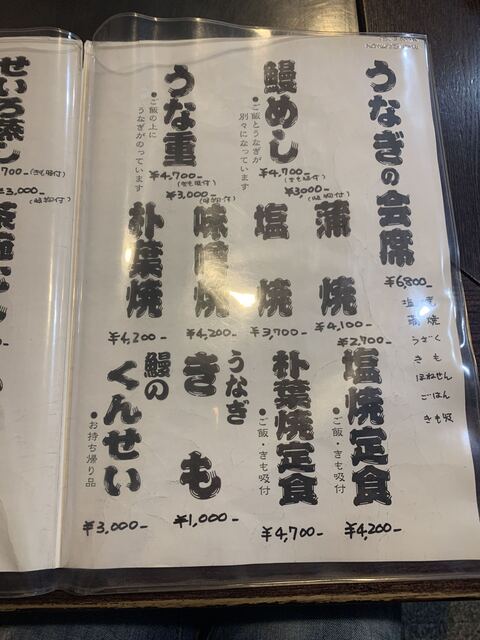 うなぎの会席
¥6,800-
塩焼
蒲焼
うざく
きも
ほねせん
ごはん
きも吸
鰻めし
●ご飯とうなぎが
別々になっています
¥4,700-
(きも吸付)
¥3000-
(吸物付)
うな重
●ご飯の上に
うなぎがのっています
¥4,700-
(きも吸付)
¥3,000-
(吸物付)
蒲焼
¥4,100-
¥2,700-
塩焼
¥3,700-
味噌焼
¥4,200-
朴葉焼
¥4,200-
塩焼定食
●ご飯・きも吸付
¥4,200-
朴葉焼定食
●ご飯・きも吸付
¥4,700-
うなぎ
きも
¥1,000-
鰻の
くんせい
●お持ち帰り品
¥3,000-
せいろ蒸し
700-(きも吸付)
¥3,000-
(吸物付)